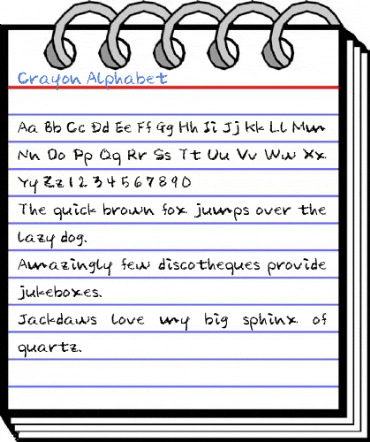 Crayon Alphabet
Aa Bb Cc Dd Ee Ff Gg Hh Ii Jj Kk Ll Mm
Nn Oo Pp Qq Rr Ss Tt Uu Vv Ww Xx
Yy Zz 1 2 3 4 5 6 7 8 9 0
The quick brown fox jumps over the
lazy dog.
Amazingly few discotheques provide
jukeboxes.
Jackdaws love my big sphinx of
quartz.